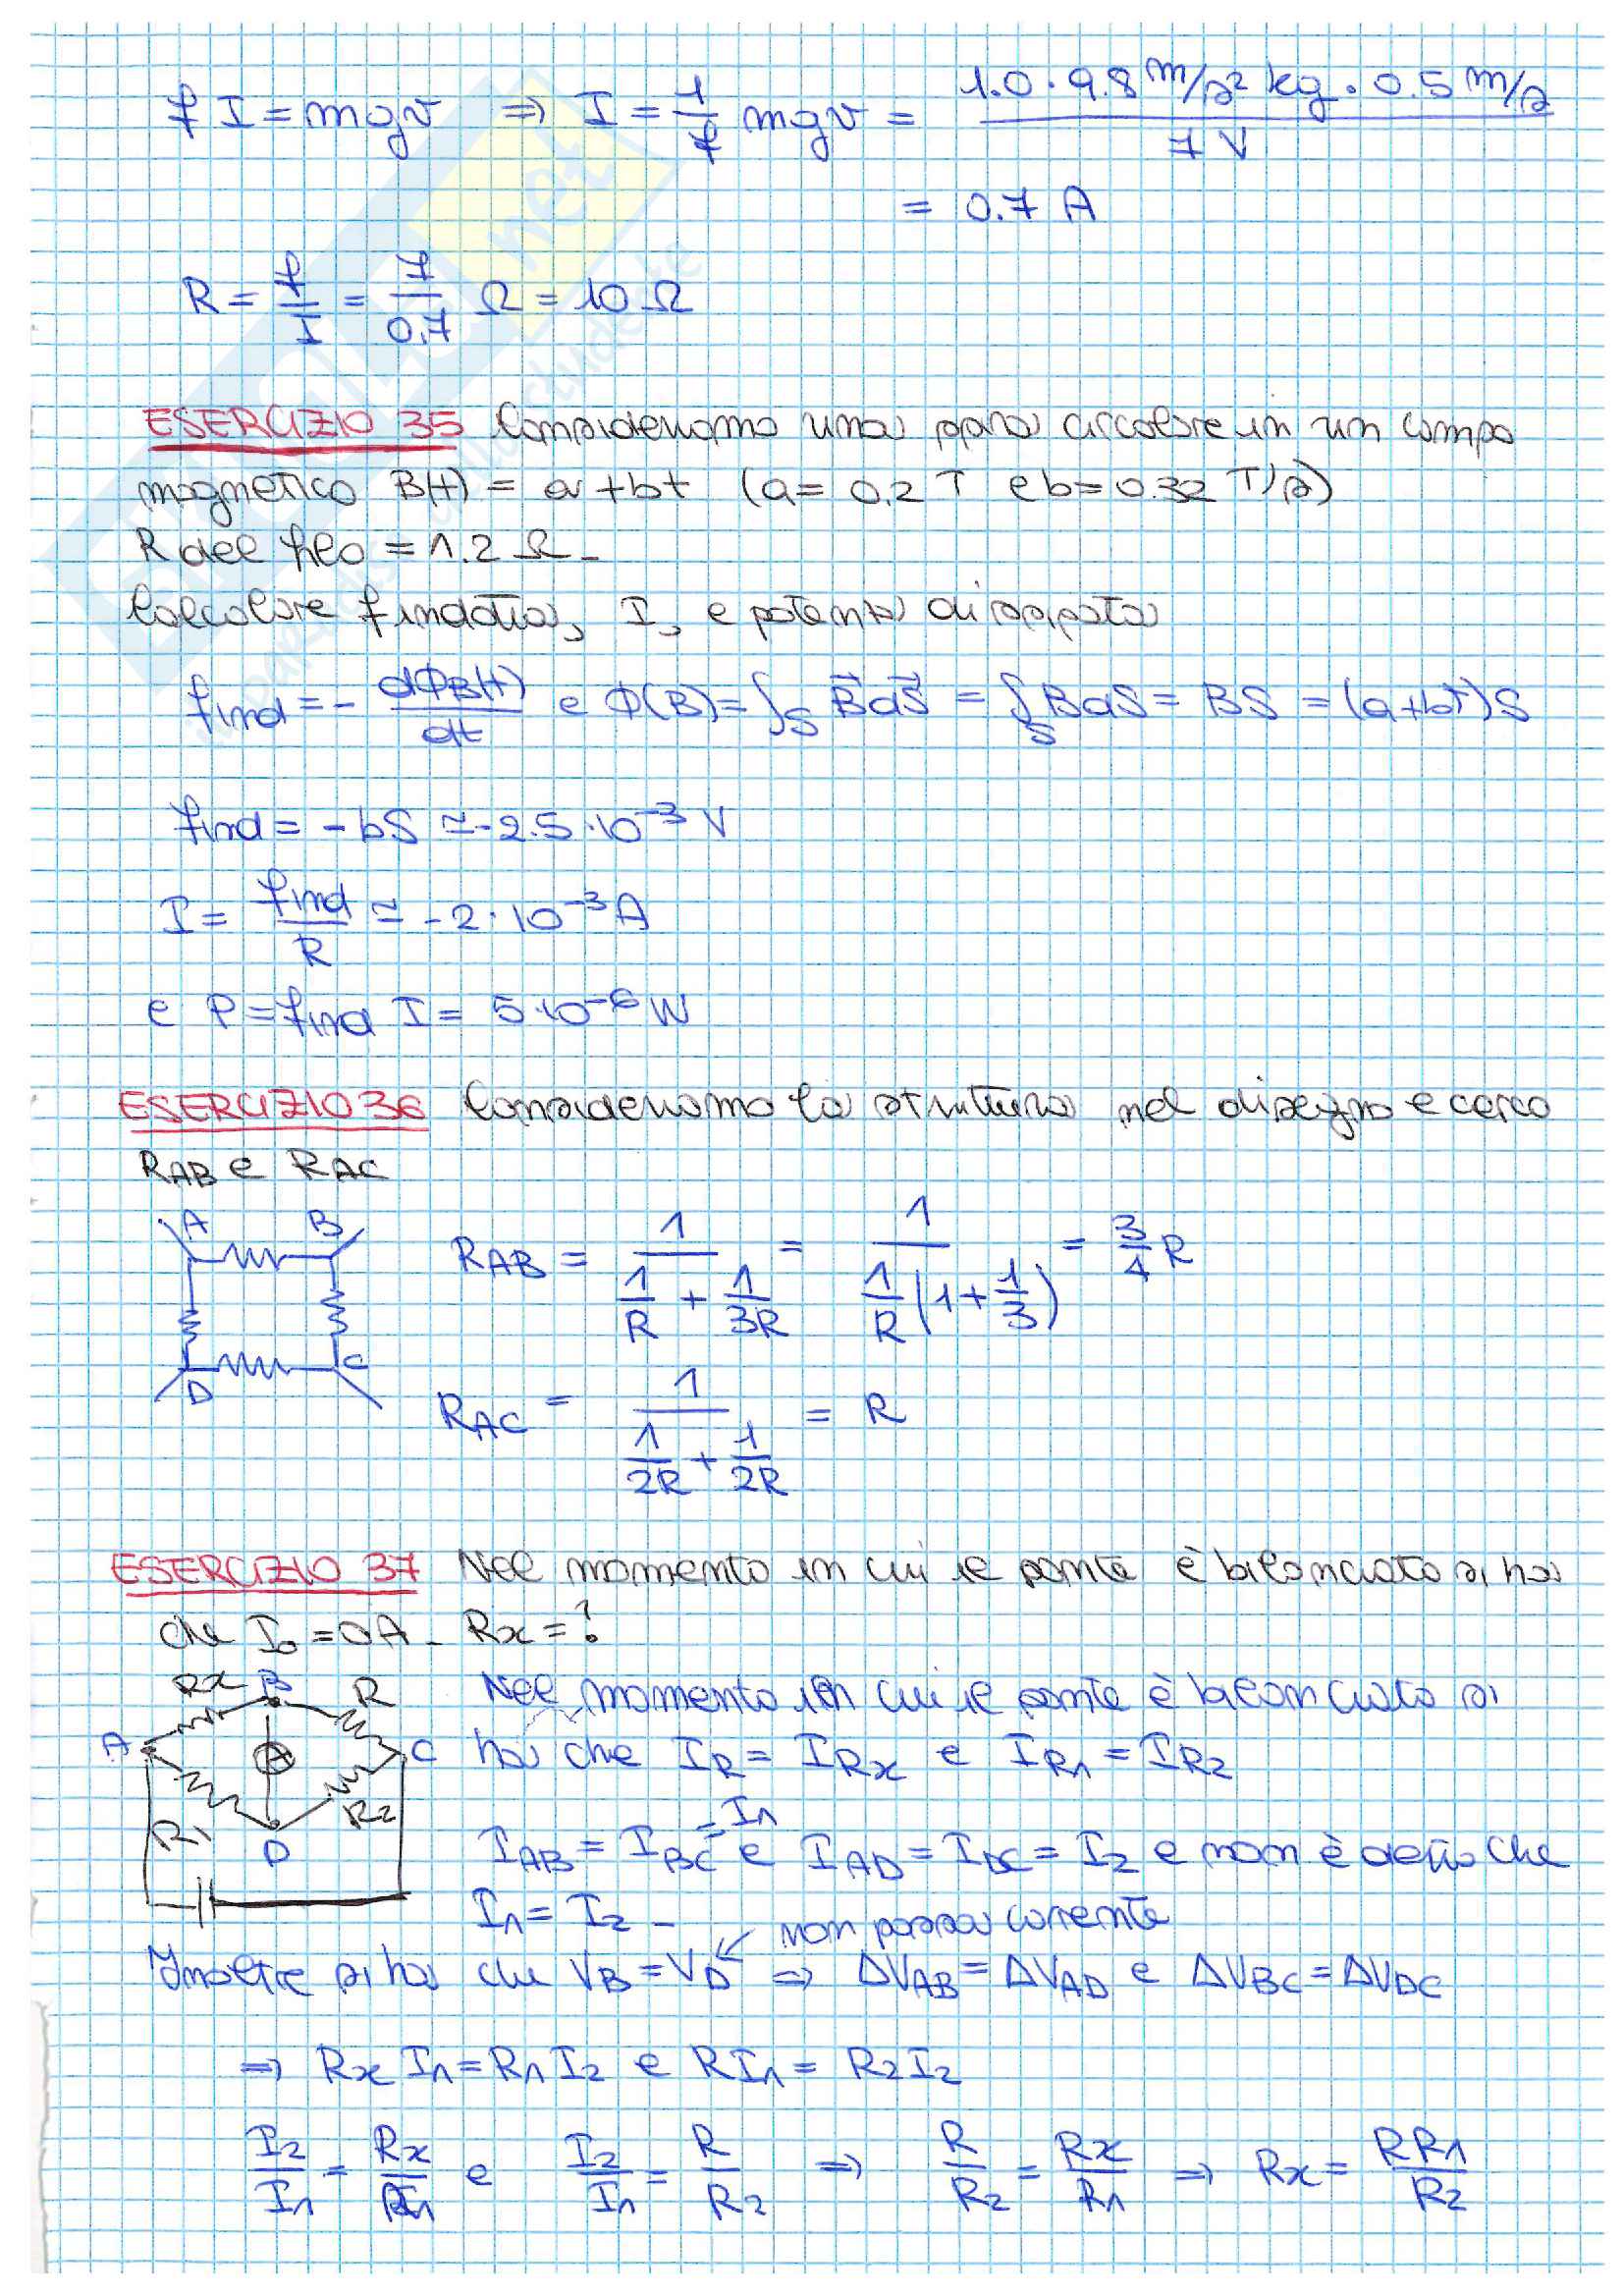 f I = mgv ⇒ I = 1/f mgv = 1.0 · 9.8 m/s² kg · 0.5 m/s / 7 V
= 0.7 A
R = f/I = 7/0,7 Ω = 10 Ω
ESERCIZIO 35 Consideriamo una spira circolare in un campo
magnetico B(t) = a + bt (a = 0,2 T e b = 0.32 T/s)
R del filo = 1.2 Ω -
Calcolare f indotta, I, e potenza dissipata
find = - dΦB(t)/dt e Φ(B) = ∫S B⃗ dS⃗ = ∫S B dS = BS = (a+bt) S
find = -bS ≃ -2.5 · 10⁻³ V
I = find/R ≃ -2 · 10⁻³ A
e P = find I = 5 · 10⁻⁶ W
ESERCIZIO 36 Consideriamo la struttura nel disegno e cerco
RAB e RAC
A B
D C
RAB = 1/(1/R + 1/3R) = 1/(1/R (1 + 1/3)) = 3/4 R
RAC = 1/(1/2R + 1/2R) = R
ESERCIZIO 37 Nel momento in cui il ponte è bilanciato si ha
che I₀ = 0A - Rx = ?
Rx B R
A A C
R1 D R2
Nel momento in cui il ponte è bilanciato si
ha che IR = IRx e IR1 = IR2
IAB = IBC = I1 e IAD = IDC = I2 e non è detto che
I1 = I2 -
non passa corrente
Inoltre si ha che VB = VD ⇒ ΔVAB = ΔVAD e ΔVBC = ΔVDC
⇒ Rx I1 = R1 I2 e R I1 = R2 I2
I2/I1 = Rx/R1 e I2/I1 = R/R2 ⇒ R/R2 = Rx/R1 ⇒ Rx = R R1/R2